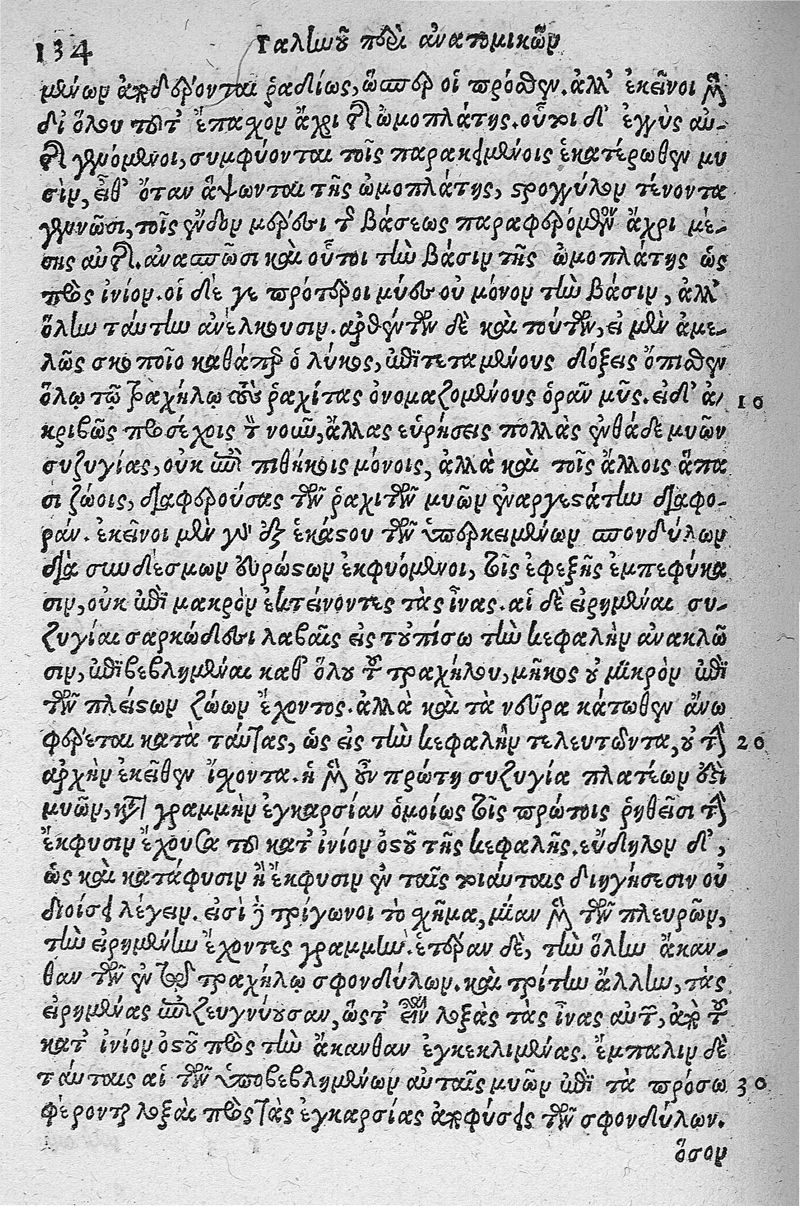 134 Γαληνοῦ περὶ ἀνατομικῶν
μένων ἀποδέρονται ῥᾳδίως, ὥσπερ οἱ πρόσθεν. ἀλλ' ἐκεῖνοι μὲν
δι' ὅλου τοῦτ' ἔπαχον ἄχρι τῆς ὠμοπλάτης. οὗτοι δ' ἐγγὺς αὐ-
τῆς γενόμενοι, συμφύονται τοῖς παρακειμένοις ἑκατέρωθεν μυ
σὶν, εἶθ' ὅταν ἅψωνται τῆς ὠμοπλάτης, στρογγύλον τένοντα
γεννῶσι, τοῖς ἔνδον μέρεσι τῆς βάσεως παραφερόμενον ἄχρι μέ-
σης αὐτῆς. ἀνασπῶσι καὶ οὗτοι τὴν βάσιν τῆς ὠμοπλάτης ὡς
πρὸς ἰνίον. οἱ δέ γε πρότεροι μύες οὐ μόνον τὴν βάσιν, ἀλλ'
ὅλην ταύτην ἀνέλκουσιν. ἀρθέντων δὲ καὶ τούτων, εἰ μὲν ἀμε-
λῶς σκοποῖο καθάπερ ὁ λύκος, ἐπιτεταμένους δόξεις ὄπισθεν
ὅλῳ τῷ τραχήλῳ τοὺς ῥαχίτας ὀνομαζομένους ὁρᾶν μῦς. εἰ δ' ἀ-
κριβῶς προσέχοις τὸν νοῦν, ἄλλας εὑρήσεις πολλὰς ἐνθάδε μυῶν
συζυγίας, οὐκ ἐπὶ πιθήκοις μόνοις, ἀλλὰ καὶ τοῖς ἄλλοις ἅπα
σι ζώοις, διαφερούσας τῶν ῥαχιτῶν μυῶν ἐναργεστάτην διαφο-
ράν. ἐκεῖνοι μὲν γὰρ ἐξ ἑκάστου τῶν ὑπερκειμένων σπονδύλων
διὰ συνδέσμων εὐρώστων ἐκφυόμενοι, τοῖς ἐφεξῆς ἐμπεφύκα
σιν, οὐκ ἐπὶ μακρὸν ἐκτείνοντες τὰς ἶνας. αἱ δὲ εἰρημέναι συ-
ζυγίαι σαρκώδεσι λαβαῖς εἰς τοὐπίσω τὴν κεφαλὴν ἀνακλῶ
σιν, ἐπιβεβλημέναι καθ' ὅλου τοῦ τραχήλου, μῆκος οὐ μικρὸν ἐπὶ
τῶν πλείστων ζώων ἔχοντος. ἀλλὰ καὶ τὰ νεῦρα κάτωθεν ἄνω
φέρεται κατὰ ταύτας, ὡς εἰς τὴν κεφαλὴν τελευτῶντα, οὐ τὴν 20
ἀρχὴν ἐκεῖθεν ἴχοντα. ἡ μὲν οὖν πρώτη συζυγία πλατέων ἐστὶ
μυῶν, κατὰ γραμμὴν ἐγκαρσίαν ὁμοίως τοῖς πρώτοις ῥηθεῖσι τὴν
ἔκφυσιν ἔχουσα τοῦ κατ' ἰνίον ὀστοῦ τῆς κεφαλῆς. εὔδηλον δ',
ὡς καὶ κατάφυσιν ἢ ἔκφυσιν ἐν ταῖς τοιαύταις διηγήσεσιν οὐ
διοίσει λέγειν. εἰσὶ δὲ τρίγωνοι τὸ σχῆμα, μίαν μὲν τῶν πλευρῶν,
τὴν εἰρημένην ἔχοντες γραμμὴν. ἑτέραν δὲ, τὴν ὅλην ἄκαν-
θαν τῶν ἐν τῷ τραχήλῳ σφονδύλων. καὶ τρίτην ἄλλην, τὰς
εἰρημένας ἐπιζευγνύουσαν, ὥστ' εἶναι λοξὰς τὰς ἶνας αὐτῶν, ἀπὸ τοῦ
κατ' ἰνίον ὀστοῦ πρὸς τὴν ἄκανθαν ἐγκεκλιμένας. ἔμπαλιν δὲ
ταύταις αἱ τῶν ὑποβεβλημένων αὐταῖς μυῶν ἐπὶ τὰ πρόσω 30
φέρονται λοξαὶ πρὸς τὰς ἐγκαρσίας ἀποφύσεις τῶν σφονδύλων.
ὅσον
10